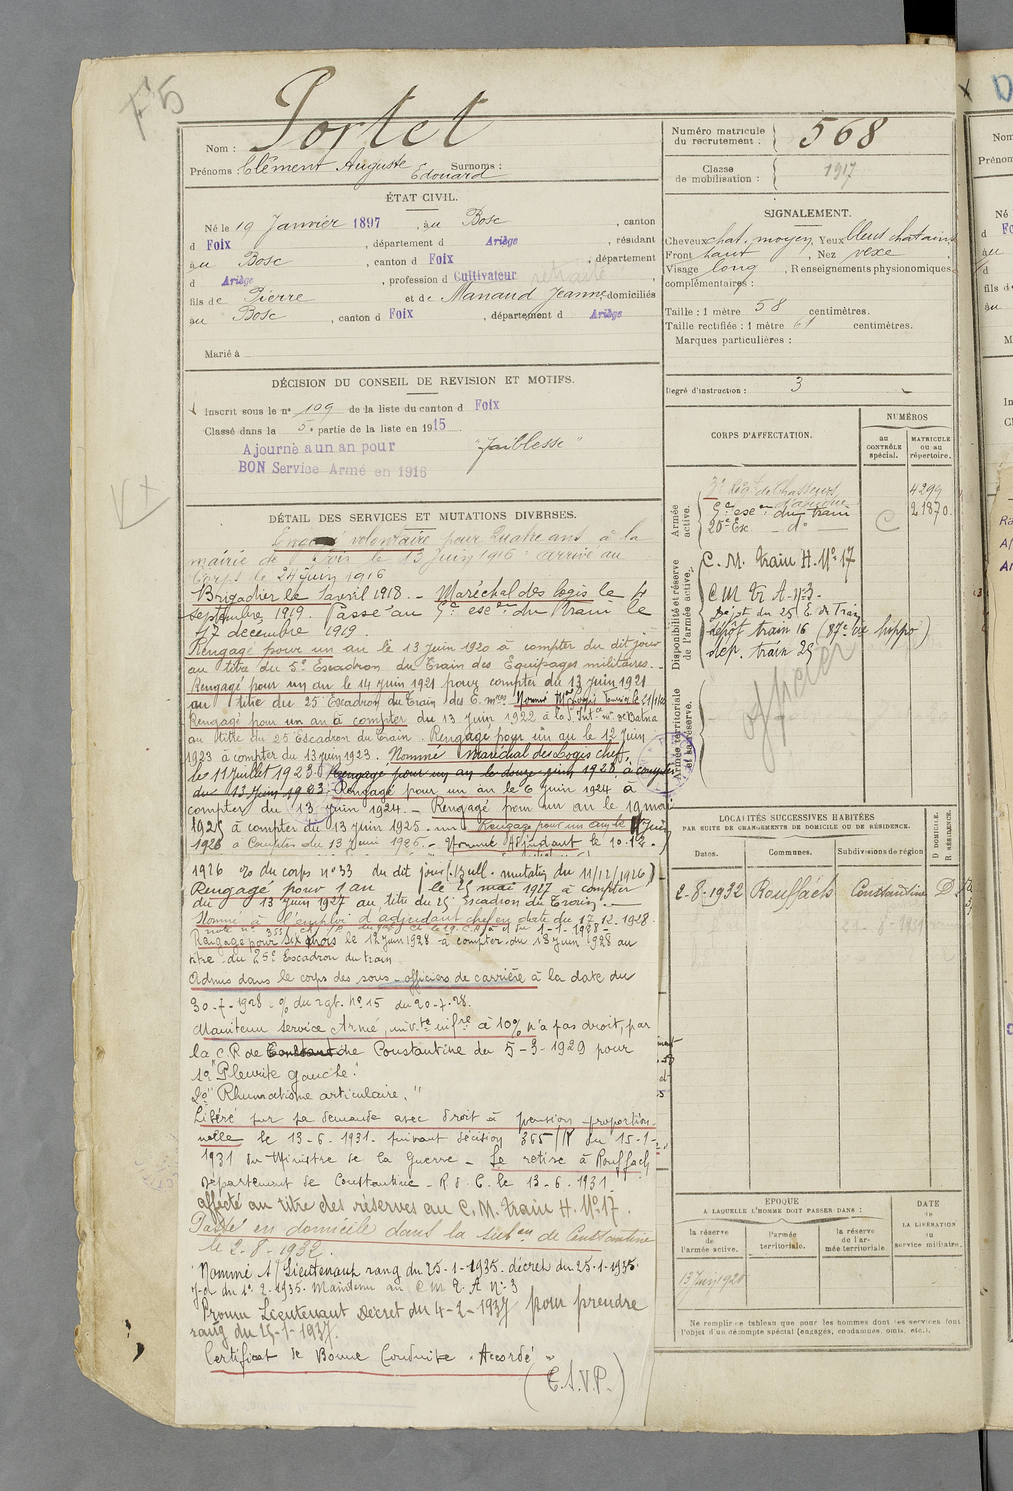 F°5
Portet
Nom :
Prénoms : Clément Auguste Edouard Surnoms :
ÉTAT CIVIL.
Né le 19 Janvier 1897, au Bosc, canton
d Foix, département d Ariège, résidant
au Bosc, canton d Foix, département
d Ariège, profession d Cultivateur retraité
fils de Pierre et de Manaud Jeanne domiciliés
au Bosc, canton d Foix, département d Ariège
Marié à
DÉCISION DU CONSEIL DE REVISION ET MOTIFS.
Inscrit sous le n° 109 de la liste du canton d Foix
Classé dans la 5e partie de la liste en 1915
Ajourné a un an pour "faiblesse"
BON Service Armé en 1916
DÉTAIL DES SERVICES ET MUTATIONS DIVERSES.
Engagé volontaire pour quatre ans à la
mairie de Foix le 13 Juin 1916 arrivé au
Corps le 24 Juin 1916
Brigadier le 1 avril 1918. - Maréchal des logis le 4
septembre 1919. Passé au 5e esc on du Train le
17 decembre 1919.
Rengagé pour un an le 13 Juin 1920 à compter du dit jour
au titre du 5e Escadron du Train des Equipages militaires.
Rengagé pour un an le 14 Juin 1921 pour compter du 13 juin 1921
au titre du 25 Escadron du Train des E. mres Nommé Mal Logis
Rengagé pour un an à compter du 13 Juin 1922 à la S. Int ce mre de Batna
au titre du 25 Escadron du Train - Rengagé pour un an le 12 Juin
1923 à compter du 13 juin 1923. Nommé Maréchal des Logis chef,
le 11 Juillet 1923 Rengagé pour un an le douze juin 1928 à compter
du 13 Juin 1923 Rengagé pour un an le 6 juin 1924 à
compter du 13 Juin 1924. - Rengagé pour un an le 19 mai
1925 à compter du 13 Juin 1925. Rengagé pour un an le Juin
1926 à Compter du 13 Juin 1926. - Nommé Adjudant le 10.12.
1926 % du corps n° 33 du dit jour (Bull. mutation du 11/12/1926)
Rengagé pour 1 an le 25 mai 1927 à compter
du 13 juin 1927 au titre du 25 Escadron du Train. -
Nommé à l'emploi d'adjudant chef en date du 17-12-1928.
Rengagé pour six mois le 12 Juin 1928 à compter du 13 Juin 1928 au
titre du 25e Escadron du train
Admis dans le corps des sous-officiers de carrière à la date du
30-7-1928 - % du rgt. n° 15 du 20-7-28.
Maintenu Service Armé, inv. té inf re à 10% n'a pas droit, par
la C.R de Constantine du 5-3-1929 pour
1° "Pleurite gauche."
2° "Rhumatisme articulaire."
Libéré sur sa demande avec droit à pension proportion-
nelle le 13-6-1931. suivant décision 365/N du 15-1-
1931 du Ministre de la Guerre - Se retire à Rouffach
Département de Constantine - R d C. le 13-6-1931.
affecté au titre des réserves au C.M. train H. N° 17.
Passé en domicile dans la sub on de Constantine
le 2-8-1932.
Nommé S/Lieutenant rang du 25-1-1935. décret du 25-1-1935.
J.O du 1er 2-1935. Maintenu au C M T. A N° 3
Promu Lieutenant Décret du 4-2-1937 pour prendre
rang du 25-1-1937.
Certificat de Bonne Conduite "Accordé"
(E.A.V.P.)
Numéro matricule du recrutement : 568
Classe de mobilisation : 1917
SIGNALEMENT.
Cheveux chat. moyen, Yeux bleus chatains
Front haut, Nez vexe,
Visage long, Renseignements physionomiques
complémentaires :
Taille : 1 mètre 58 centimètres.
Taille rectifiée : 1 mètre 61 centimètres.
Marques particulières :
Degré d'instruction : 3
CORPS D'AFFECTATION.
NUMÉROS
au CONTRÔLE spécial.
MATRICULE ou au répertoire.
Armée active.
Régt de Chasseurs d'Afrique 4299
5e esc on du train 21870
20e Esc. d°
C
Disponibilité et réserve de l'armée active.
C. M. train H. N° 17
C M Tr A. N°3.
Dépôt du 25 E. du Train
dépôt train 16 (87e Cie hippo)
dép. train 25
Armée territoriale et sa réserve.
officier
LOCALITÉS SUCCESSIVES HABITÉES
PAR SUITE DE CHANGEMENTS DE DOMICILE OU DE RÉSIDENCE.
Dates. Communes. Subdivisions de région D DOMICILE. R RÉSIDENCE.
2-8-1932 Rouffach Constantine D
EPOQUE
A LAQUELLE L'HOMME DOIT PASSER DANS :
la réserve de l'armée active.
l'armée territoriale.
la réserve de l'armée territoriale
DATE de LA LIBÉRATION du service militaire.
13 Juin 1920
Ne remplir ce tableau que pour les hommes dont les services font
l'objet d'un décompte spécial (engagés, condamnés, omis, etc.).